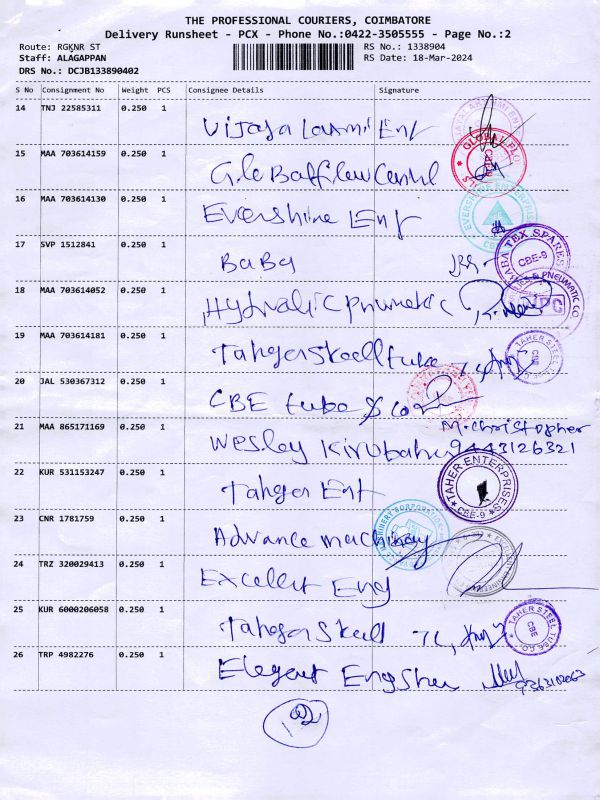 THE PROFESSIONAL COURIERS, COIMBATORE
Delivery Runsheet - PCX - Phone No.:0422-3505555 - Page No.:2
Route: RGKNR ST RS No.: 1338904
Staff: ALAGAPPAN RS Date: 18-Mar-2024
DRS No.: DCJB133890402
S No Consignment No Weight PCS Consignee Details Signature
14 TNJ 22585311 0.250 1
Vijaya Laxmi Ent
15 MAA 703614159 0.250 1
16 MAA 703614130 0.250 1
Evershine Ent
17 SVP 1512841 0.250 1
Baba
BABA TEX SPARES CBE-9
18 MAA 703614052 0.250 1
Hydralic pnumatic
& PNEUMATIC CO.
19 MAA 703614181 0.250 1
tube
TAHER STEEL CBE
20 JAL 530367312 0.250 1
CBE tube & co
21 MAA 865171169 0.250 1 M.christopher
Wesley Kirubaharan 9443126321
22 KUR 531153247 0.250 1
Ent
TAHER ENTERPRISES CBE-9
23 CNR 1781759 0.250 1
Advance machinery
MACHINERY CORPORATION
24 TRZ 320029413 0.250 1
Excellent Eng
25 KUR 6000206058 0.250 1
TAHER STEEL TUBE CO. CBE
26 TRP 4982276 0.250 1
Elegant